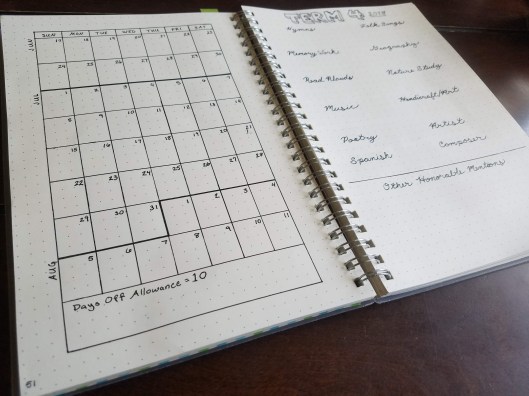 SUN MON TUE WED THU FRI SAT
JUN
17 18 19 20 21 22 23
24 25 26 27 28 29 30
JUL
1 2 3 4 5 6 7
8 9 10 11 12 13 14
15 16 17 18 19 20 21
22 23 24 25 26 27 28
29 30 31 1 2 3 4
AUG
5 6 7 8 9 10 11
Days Off Allowance = 10
51
TERM 4
Hymns
Folk Songs
Memory Work
Geography
Read Alouds
Nature Study
Music
Handicraft/Art
Poetry
Artist
Spanish
Composer
Other Honorable Mentions